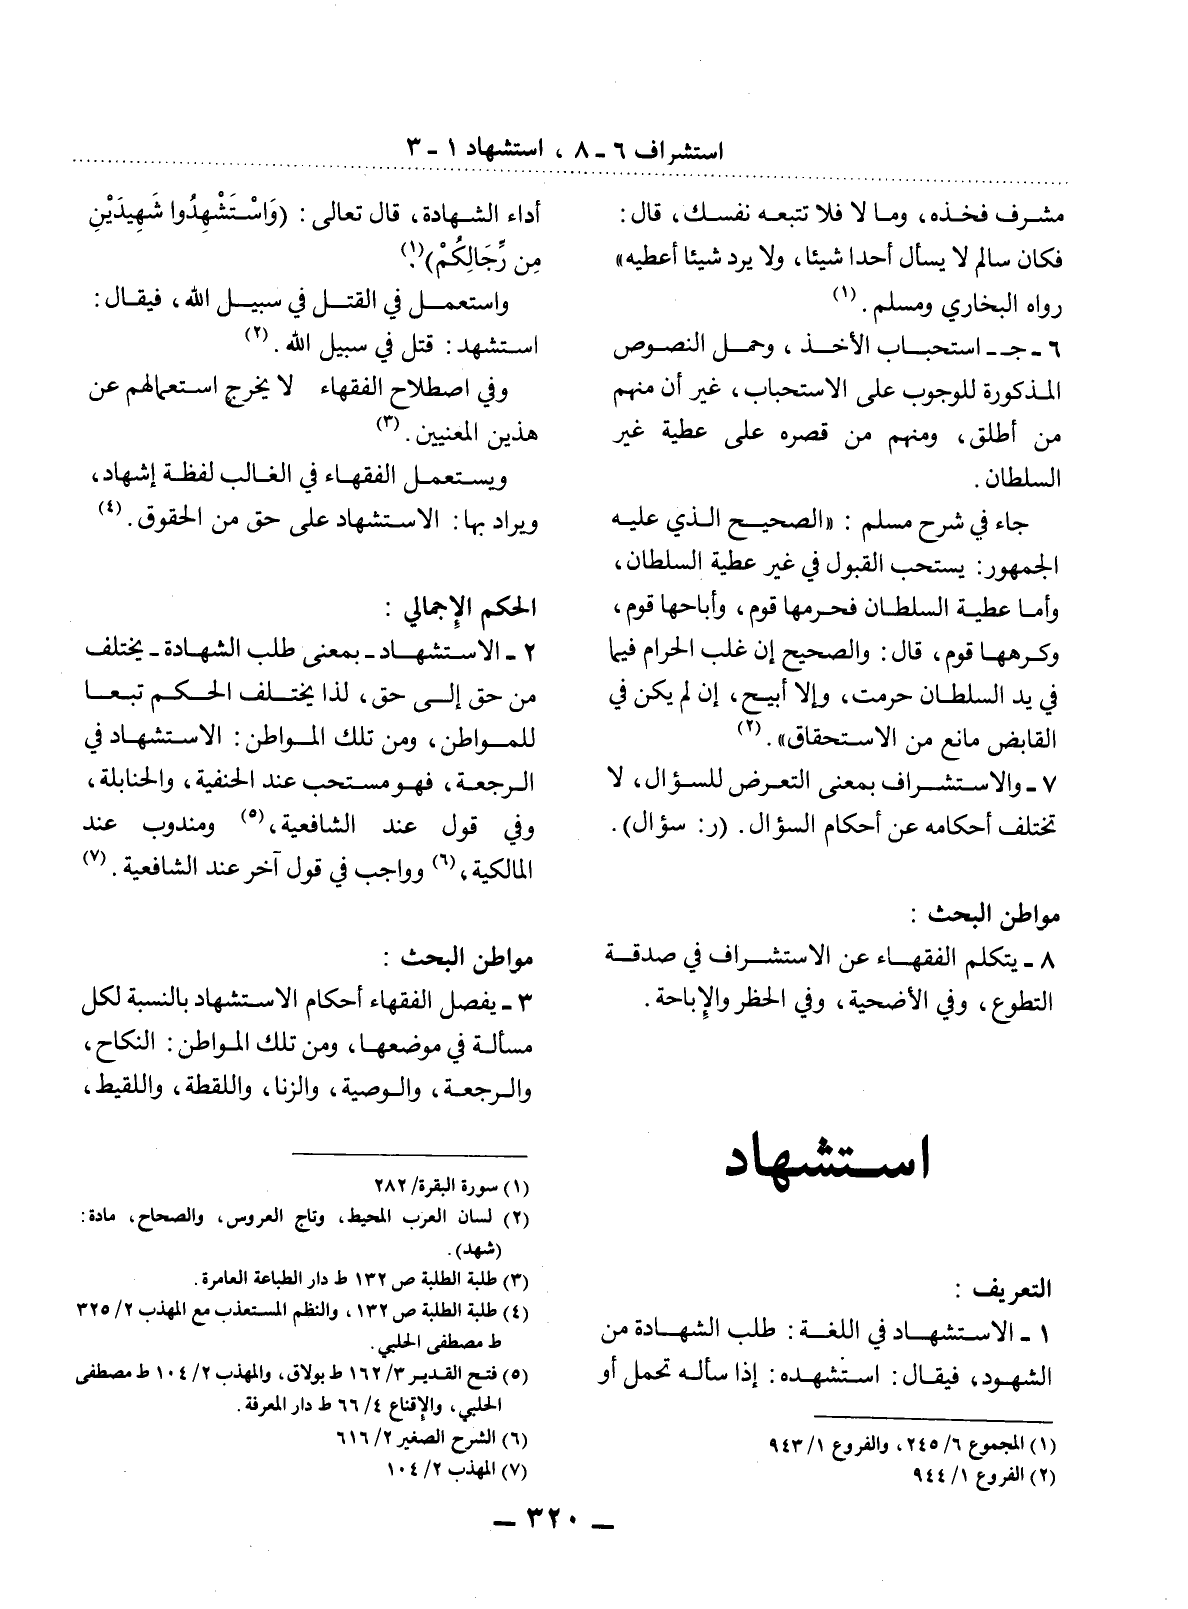 استشراف ٦ ـ ٨ ، استشهاد ١ ـ ٣
مشرف فخذه، وما لا فلا تتبعه نفسك، قال:
فكان سالم لا يسأل أحدا شيئا، ولا يرد شيئا أعطيه»
رواه البخاري ومسلم. (١)
٦ ـ جـ ـ استحباب الأخذ ، وحمل النصوص
المذكورة للوجوب على الاستحباب، غير أن منهم
من أطلق، ومنهم من قصره على عطية غير
السلطان .
جاء في شرح مسلم : «الصحيح الذي عليه
الجمهور: يستحب القبول في غير عطية السلطان،
وأما عطية السلطان فحرمها قوم، وأباحها قوم،
وكرهها قوم، قال: والصحيح إن غلب الحرام فيما
في يد السلطان حرمت، وإلا أبيح، إن لم يكن في
القابض مانع من الاستحقاق». (٢)
٧ ـ والاستشراف بمعنى التعرض للسؤال، لا
تختلف أحكامه عن أحكام السؤال. (ر: سؤال).
مواطن البحث :
٨ ـ يتكلم الفقهاء عن الاستشراف في صدقة
التطوع، وفي الأضحية، وفي الحظر والإباحة.
استشهاد
التعريف :
١ ـ الاستشهاد في اللغة: طلب الشهادة من
الشهود، فيقال: استشهده: إذا سأله تحمل أو
(١) المجموع ٦/ ٢٤٥، والفروع ١/ ٩٤٣
(٢) الفروع ١/ ٩٤٤
أداء الشهادة، قال تعالى : (وَاسْتَشْهِدُوا شَهِيدَيْنِ
مِن رِّجَالِكُمْ). (١)
واستعمل في القتل في سبيل الله، فيقال:
استشهد: قتل في سبيل الله . (٢)
وفي اصطلاح الفقهاء لا يخرج استعمالهم عن
هذين المعنيين. (٣)
ويستعمل الفقهاء في الغالب لفظة إشهاد،
ويراد بها: الاستشهاد على حق من الحقوق. (٤)
الحكم الإجمالي :
٢ ـ الاستشهاد ـ بمعنى طلب الشهادة ـ يختلف
من حق إلى حق، لذا يختلف الحكم تبعا
للمواطن، ومن تلك المواطن: الاستشهاد في
الرجعة، فهو مستحب عند الحنفية، والحنابلة،
وفي قول عند الشافعية،(٥) ومندوب عند
المالكية،(٦) وواجب في قول آخر عند الشافعية. (٧)
مواطن البحث :
٣ ـ يفصل الفقهاء أحكام الاستشهاد بالنسبة لكل
مسألة في موضعها، ومن تلك المواطن: النكاح،
والرجعة، والوصية، والزنا، واللقطة، واللقيط،
(١) سورة البقرة/ ٢٨٢
(٢) لسان العرب المحيط، وتاج العروس، والصحاح، مادة:
(شهد).
(٣) طلبة الطلبة ص ١٣٢ ط دار الطباعة العامرة.
(٤) طلبة الطلبة ص ١٣٢، والنظم المستعذب مع المهذب ٢/ ٣٢٥
ط مصطفى الحلبي.
(٥) فتح القدير ٣/ ١٦٢ ط بولاق، والمهذب ٢/ ١٠٤ ط مصطفى
الحلبي، والإقناع ٤/ ٦٦ ط دار المعرفة.
(٦) الشرح الصغير ٢/ ٦١٦
(٧) المهذب ٢/ ١٠٤
ـ ٣٢٠ ـ